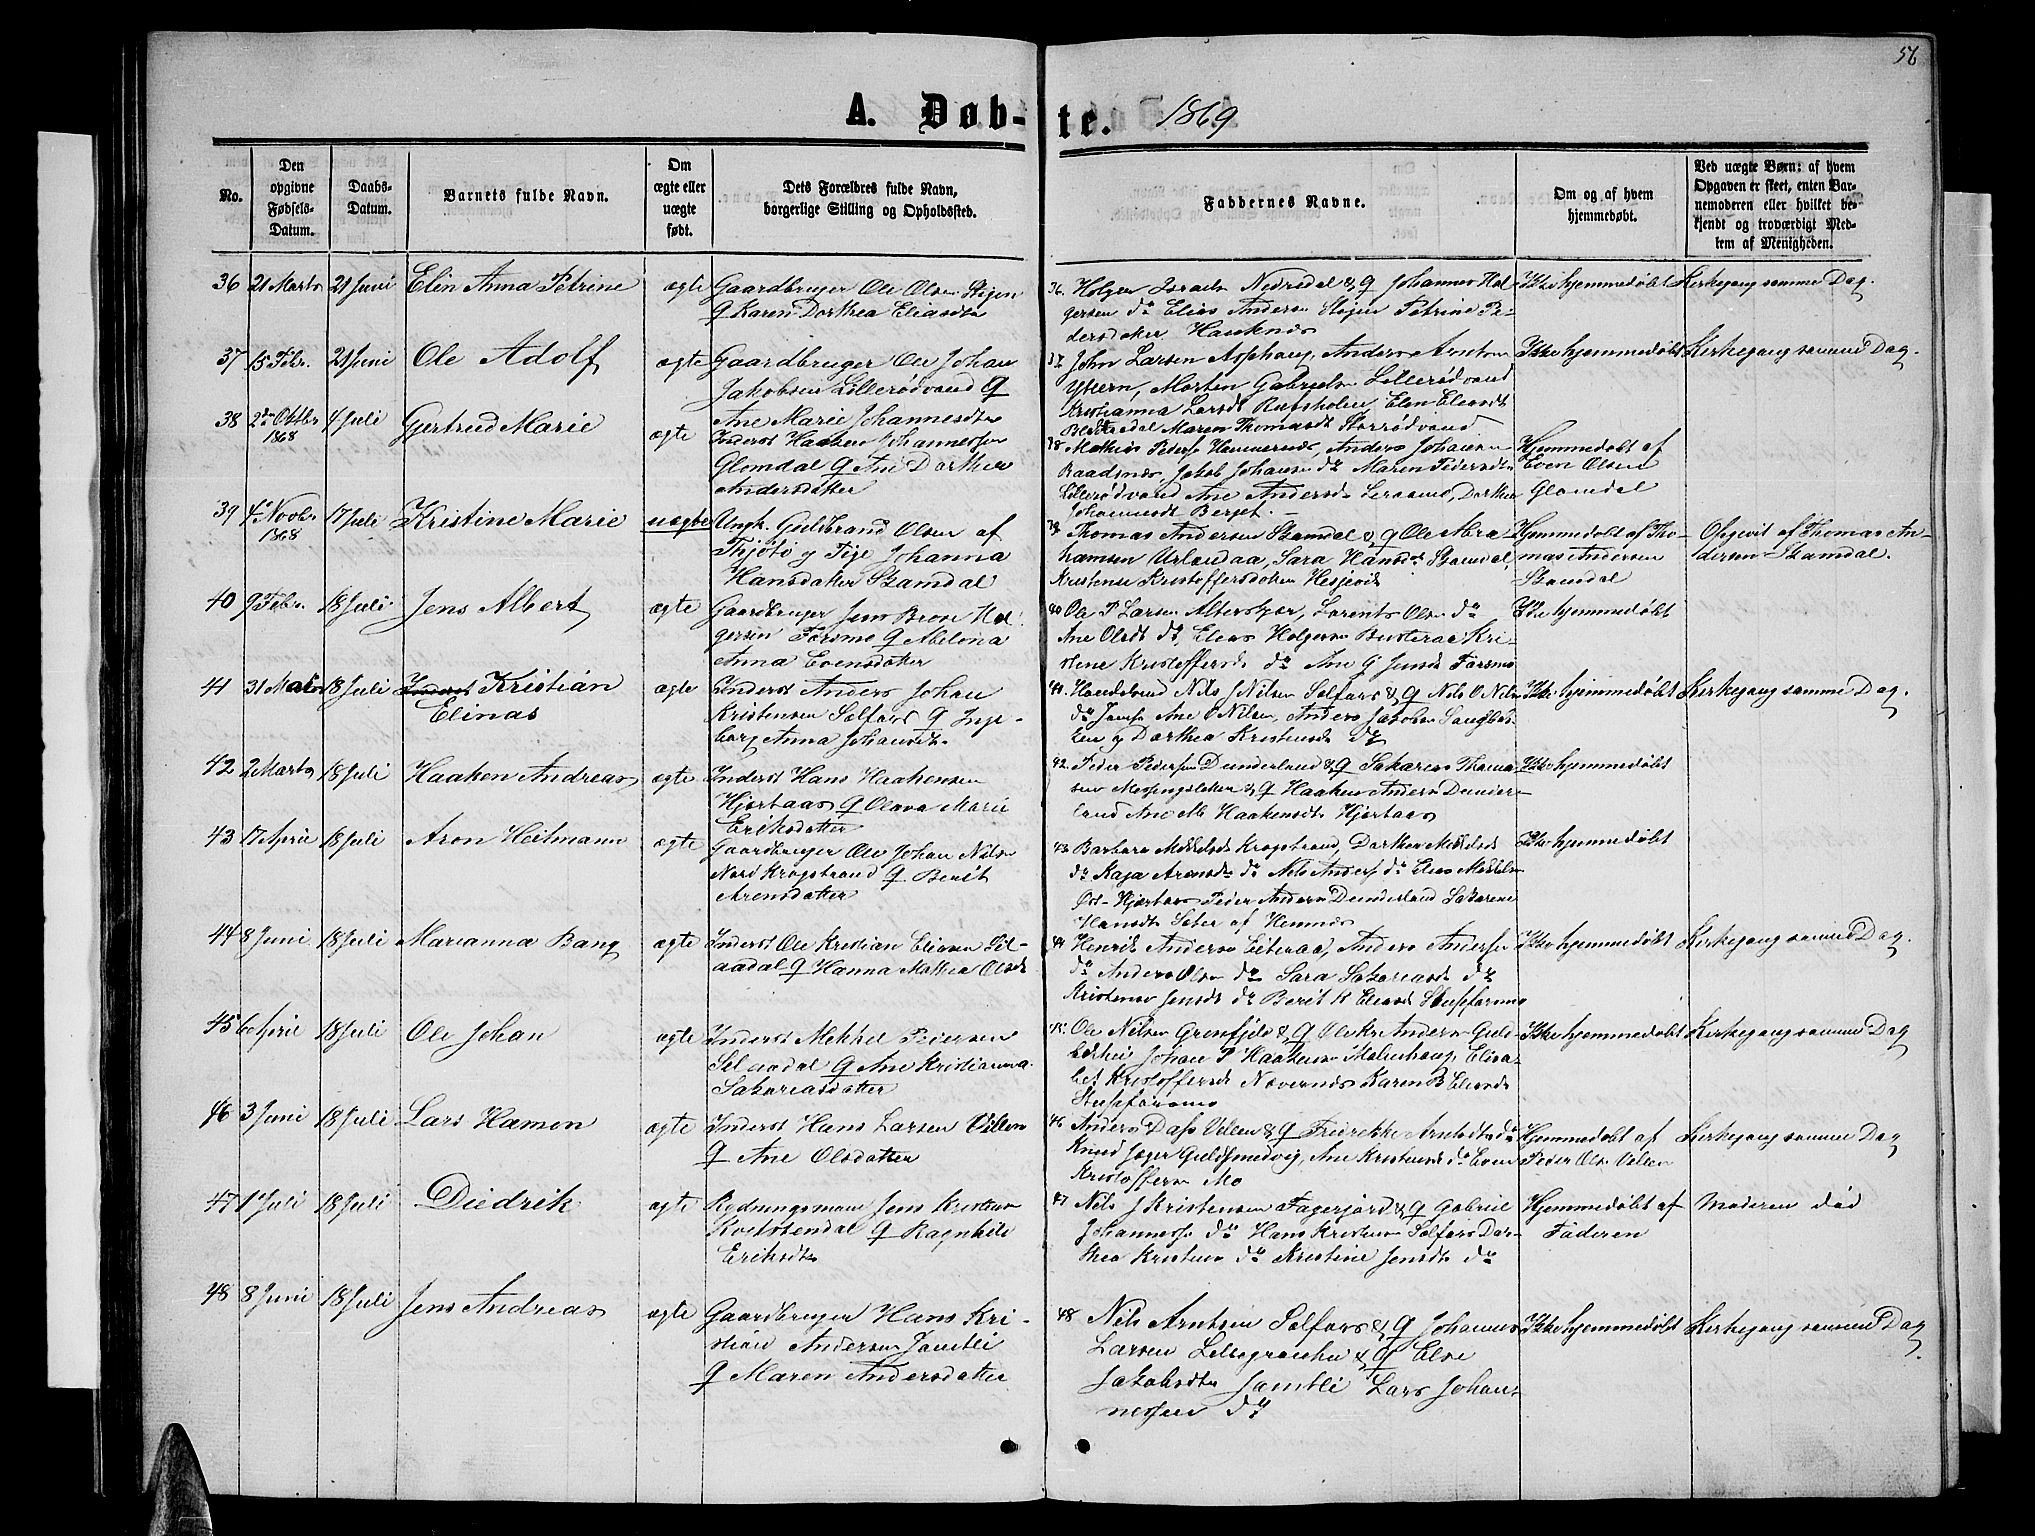 56
A. Døb-te. 1869
No.
Den opgivne Fødsels-Datum.
Daabs-Datum.
Barnets fulde Navn.
Om ægte eller uægte født.
Dets Forældres fulde Navn, borgerlige Stilling og Opholdssted.
Faddernes Navne.
Om og af hvem hjemmedøbt.
Ved uægte Børn: af hvem Opgaven er skeet, enten Barnemoderen eller hvilket bekjendt og troværdigt Medlem af Menigheden.
36 21 Marts 21 Juni Elin Anna Petrine ægte Gaardbruger Ole Olsen Stejen
q Karen Dorthea Eliasdtr
36. Holger Israels Nedredal & q Johannes Hol-
gersen do Elias Anders Stejen Petrine Pe-
dersdatter Hauknes
Ikke hjemmedøbt Kirkegang samme Dag.
37 15 Febr. 21 Juni Ole Adolf ægte Gaardbruger Ole Johan
Jakobsen Lillerødvand q
Ane Marie Johannesdtr
37. John Larsen Asphaug, Anders Arntsen
Yttern, Morten Gabriels Lillerødvand
Kristianna Larsdt Refsholen Elen Eliasdt
Maren Thomasdt Storrødvand
Ikke hjemmedøbt Kirkegang samme Dag.
38 2den Oktbr 1868 4 Juli Gjertrud Marie ægte Inderst Haaken Johannessen
Glomdal q Ane Dorthea
Andersdatter
38. Mathias Peders Hammernes, Anders Johansen
Raadsnes, Jakob Johansen do Maren Pedersdtr
Lillerødvand Ane Andersdt Dorthea
Johannesdt Berget.
Hjemmedøbt af
Even Olsen
Glomdal
39 4 Novbr 1868 17 Juli Kristine Marie uægte Ungk. Guldbrand Olsen af
Thjøtø og Pige Johanna
Hansdatter Skamdal
39. Thomas Andersen Skamdal & q Ole Abra-
hamsen Urlandaa, Sara Hansdt Skamdal
Kristense Kristoffersdatter Hesjevik
Hjemmedøbt af Tho-
mas Andersen
Skamdal
Opgevit af Thomas An-
dersen Skamdal.
40 9 Febr. 18 Juli Jens Albert ægte Gaardbruger Jens Brose Hol-
gersen Forsmo q Abelona
Anna Evensdatter
40 Ole P Larsen Altersbær, Lorents Olsen do
Ane Olsdt do, Elias Holgersen Busteraa Kri-
stene Kristoffersdt do Ane G Jensdt Forsmo
Ikke hjemmedøbt
41 31 Mai 18 Juli Kristian
Elinas
ægte Inderst Anders Johan
Kristensen Solfors q Inge-
borg Anna Johansdtr.
41. Nils J Nilsen Solfors & q Nils O Nilsen
do Ane O Nilsen, Anders Jakobsen
og Dorthea Kristensdt do
Ikke hjemmedøbt Kirkegang samme Dag.
42 2 Marts 18 Juli Haaken Andreas ægte Inderst Hans Haakensen
Hjortaas q Olava Marie
Eriksdatter
42. Peder Pedersen Dunderland & q Sakarias Thoma-
sen Messingsletten & q Haaken Anders Dunder-
land Ane M Haakensdt Hjartaas
Ikke hjemmedøbt
43 17 April 18 Juli Aron Heitmann ægte Gaardbruger Ole Johan Nilsen
Nord Krogstrand q Berit
Arensdatter
43. Barbara Mekkelsdt Krogstrand, Dorthea Mekkelsdt
do Kaja Arensdt do Nils Anders do Elias Mekkelsen
Ørt-Hjortaas Peder Anders Dunderland Sakarine
Hansdt Sæter af Hemnes
Ikke hjemmedøbt
44 8 Juni 18 Juli Marianna Bang ægte Inderst Ole Kristian Eliasen Sil-
aadal q Hanna Mathea Olsdt
44 Henrik Anders Eiteraa, Anders Anders
do Anders Olsen do Sara Sakariasdt do
Kristense Jensdt do Berit K Eliasdt Stupforsmo
Ikke hjemmedøbt Kirkegang samme Dag.
45 6 April 18 Juli Ole Johan ægte Inderst Mekkel Pedersen
Silaadal q Ane Kristianna
Sakariasdatter
45. Ole Nilsen Grønfjeld & q Ole Kr Anders Guld-
Johan P Haakens Malmhaug, Elisa-
bet Kristoffersdt Nævernes Karen B Eliasdt
Stupforsmo
Ikke hjemmedøbt Kirkegang samme Dag
46 3 Juni 18 Juli Lars Hamon ægte Inderst Hans Larsen Villen
q Ane Olsdatter
46 Anders Dass Velen & q Fredrikke Arntsdtr do
Knud Jæger Guldsmedvig, Ane Kristensdt do Even
Kristoffersen Mo
Hjemmedøbt af
Peder Ols Velen
Kirkegang samme Dag
47 1 Juli 18 Juli Diedrik ægte Rydningsmand Jens Kristens
Kvitstendal q Ragnhild
Eriksdtr
47 Nils J Kristensen Fagerjord & q Gabriel
Johanness do Hans Kristens Solfors Dor-
thea Kristens do Kristine Jensdt do
Hjemmedøbt af
Faderen
Moderen død
48 8 Juni 18 Juli Jens Andreas ægte Gaardbruger Hans Kri-
stian Andersen Jamtli
q Maren Andersdatter
48 Nils Arntsen Solfors & q Johannes
Larsen Lillegranhei & q Else
Jakobsdtr Jamtli Lars Johan-
nessen do
Ikke hjemmedøbt Kirkegang samme Dag.